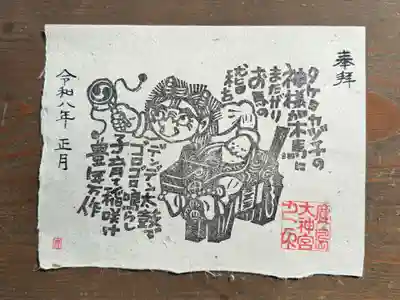 奉拝
タケミカヅチの
神様が木馬に
またがり
お馬の
デンデン太鼓を
ゴロゴロ鳴らし
子育て稲咲け
豊年万作
令和八年 正月
鹿島
大神宮